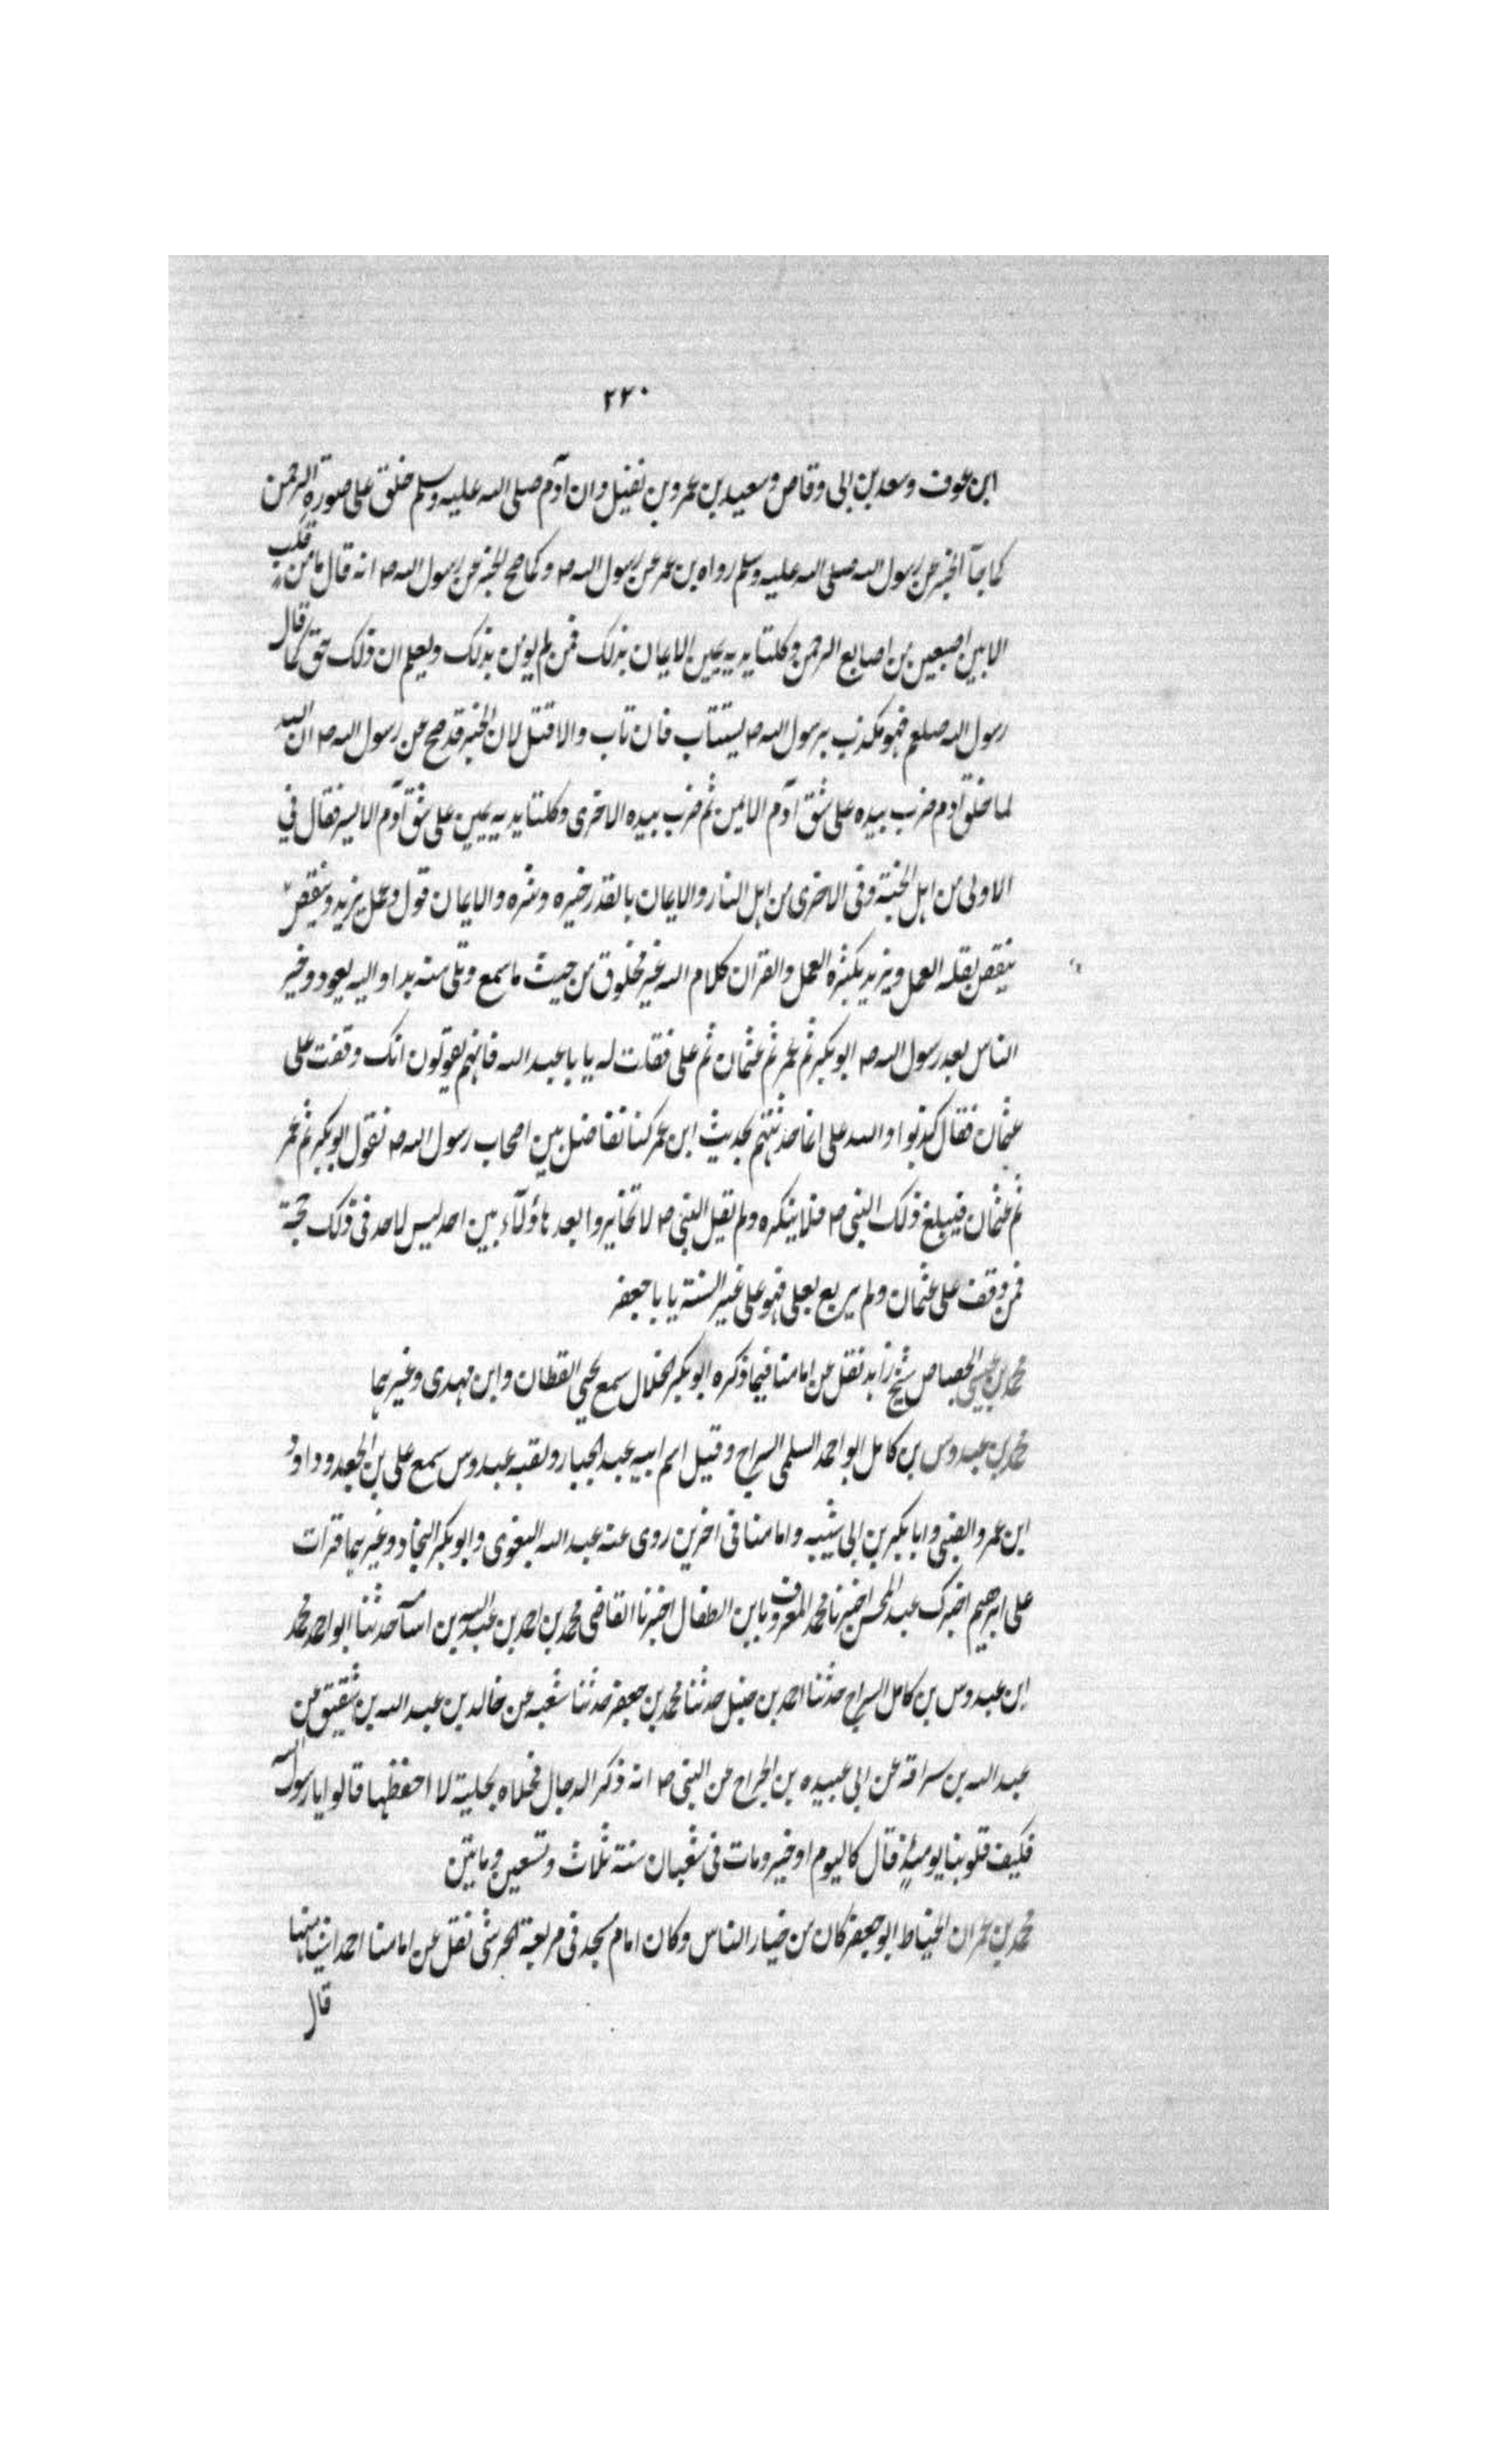 ٢٢٠
ابن عوف وسعد بن ابى وقاص وسعيد بن عمرو بن نفيل وان آدم صلى الله عليه وسلم خلق على صورة الرحمن
كما جآ الخبر عن رسول الله صلى الله عليه وسلم رواه بن عمر عن رسول الله ص وكما صح الخبر عن رسول الله ص انه قال ما من قلب
الا بين اصبعين من اصابع الرحمن وكلتا يديه يمين الايمان بذلك فمن لم يومن بذلك ويعلم ان ذلك حق كما قال
رسول الله صلعم فهو مكذب برسول الله ص يستتاب فان تاب والا قتل لان الخبر قد صح عن رسول الله ص ان الله
لما خلق آدم ضرب بيده على شق آدم الايمن ثم ضرب بيده الاخرى وكلتا يديه يمين على شق آدم الايسر فقال فى
الاولى من اهل الجنة وفى الاخرى من اهل النار والايمان بالقدر خيره وشره والايمان قول وعمل يزيد وينقص
ينقص بقله العمل ويزيد بكثره العمل والقران كلام الله غير مخلوق من حيث ما سمع وتلى منه بدا واليه يعود وخير
الناس بعد رسول الله ص ابو بكر ثم عمر ثم عثمان ثم على فقلت له يا با عبد الله فانهم يقولون انك وقفت على
عثمان فقال كذبوا والله على انما حدثتهم بحديث ابن عمر كنا نفاضل بين اصحاب رسول الله ص نقول ابو بكر ثم عمر
ثم عثمان فيبلغ ذلك النبى ص فلا ينكره ولم يقل النبى ص لا تخايروا بعد هاؤلآء بين احد ليس لاحد فى ذلك حجة
فمن وقف على عثمان ولم يربع بعلى فهو على غير السنة يا با جعفر
محمد بن عيسى الجصاص شيخ زاهد نقل عن امامنا فيما ذكره ابو بكر الخلال سمع يحيى القطان وابن مهدى وغيرهما
محمد بن عبدوس بن كامل ابو احمد السلمى السراج وقيل اسم ابيه عبد الجبار ولقبه عبدوس سمع على بن الجعد وداود
ابن عمرو الضبى وابا بكر بن ابى شيبه وامامنا فى اخرين روى عنه عبد الله البغوى وابو بكر النجاد وغيرهما قرات
على ابرهيم اخبرك عبد المحسن اخبرنا محمد المعروف بابن الطفال اخبرنا القاضى محمد بن احمد بن عبد الله بن اسآ حدثنا ابو احمد محمد
ابن عبدوس بن كامل السراج حدثنا احمد بن حنبل حدثنا محمد بن جعفر حدثنا شعبه عن خالد بن عبد الله بن شقيق عن
عبد الله بن سراقة عن ابى عبيده بن الجراح عن النبى ص انه ذكر الدجال فحلاه بحلية لا احفظها قالوا يا رسول الله
فكيف قلوبنا يومئذ قال كاليوم او خير ومات فى شعبان سنة ثلاث وتسعين وماتين
محمد بن عمران الخياط ابو جعفر كان من خيار الناس وكان امام مسجد فى مربعة الخرشى نقل عن امامنا احمد اشيا منها
قال